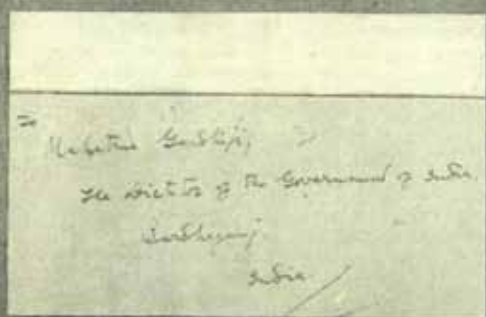 Mahatma Gandhiji,
The Dictator of the Government of India.
India